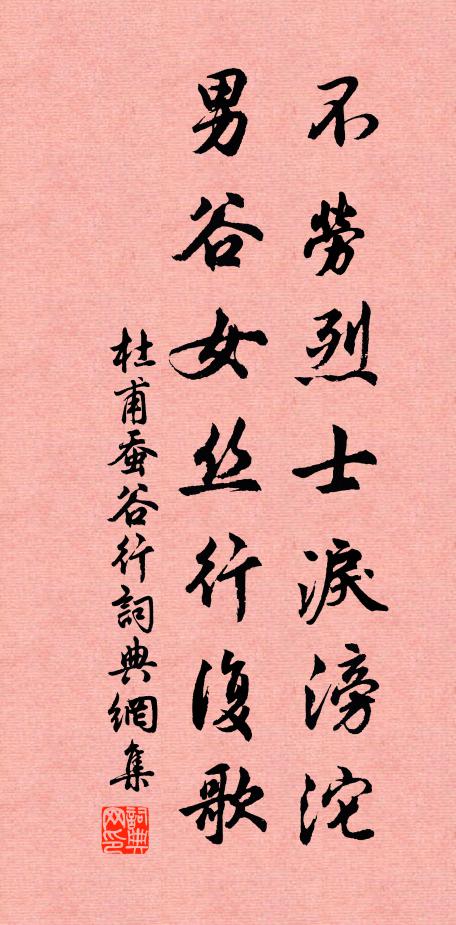 不勞烈士淚滂沱
男谷女丝行復歌
杜甫蚕谷行詞典網集
詞典网印